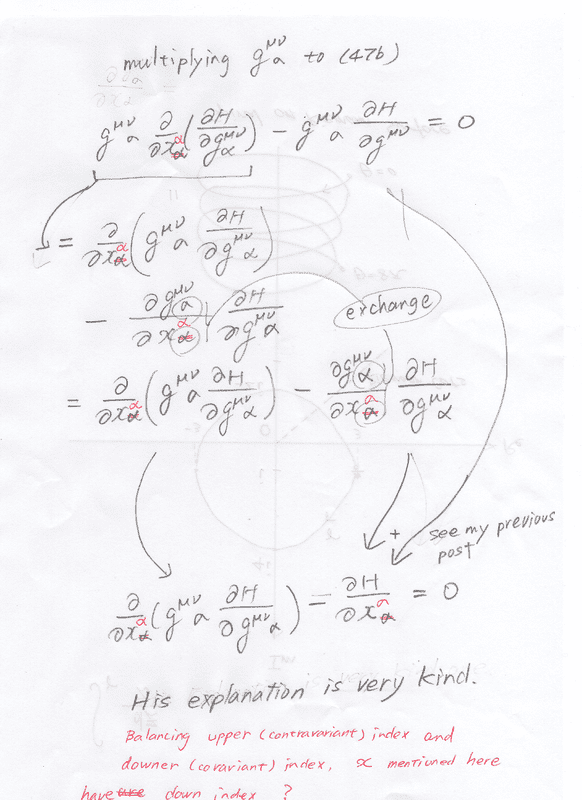 multiplying g^{μν}_a to (47b)
g^{μν}_a ∂/∂x^α (∂H/∂g^{μν}_α) − g^{μν}_a ∂H/∂g^{μν} = 0
= ∂/∂x^α (g^{μν}_a ∂H/∂g^{μν}_α)
− ∂g^{μν}_a/∂x^α ∂H/∂g^{μν}_α
exchange
= ∂/∂x^α (g^{μν}_a ∂H/∂g^{μν}_α) − ∂g^{μν}_α/∂x^a ∂H/∂g^{μν}_α
+ see my previous
post
∂/∂x^α (g^{μν}_a ∂H/∂g^{μν}_α) − ∂H/∂x^a = 0
His explanation is very kind.
Balancing upper (contravariant) index and
downer (covariant) index, x mentioned here
have down index ?